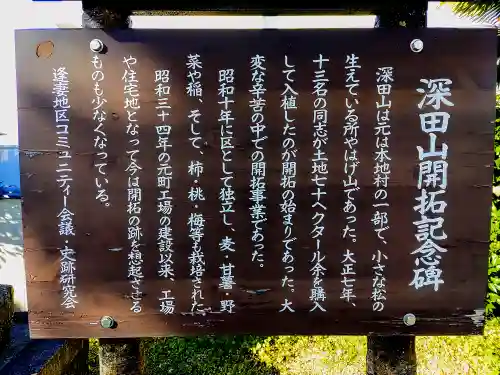 深田山開拓記念碑
深田山は元は本地村の一部で、小さな松の
生えている所やはげ山であった。大正七年、
十三名の同志が土地七十ヘクタール余を購入
して入植したのが開拓の始まりであった。大
変な辛苦の中での開拓事業であった。
昭和十年に区として独立し、麦・甘藷・野
菜や稲、そして、柿、桃、梅等も栽培された
昭和三十四年の元町工場の建設以来、工場
や住宅地となって今は開拓の跡を想起させる
ものも少なくなっている。
逢妻地区コミュニティー会議・史跡研究会